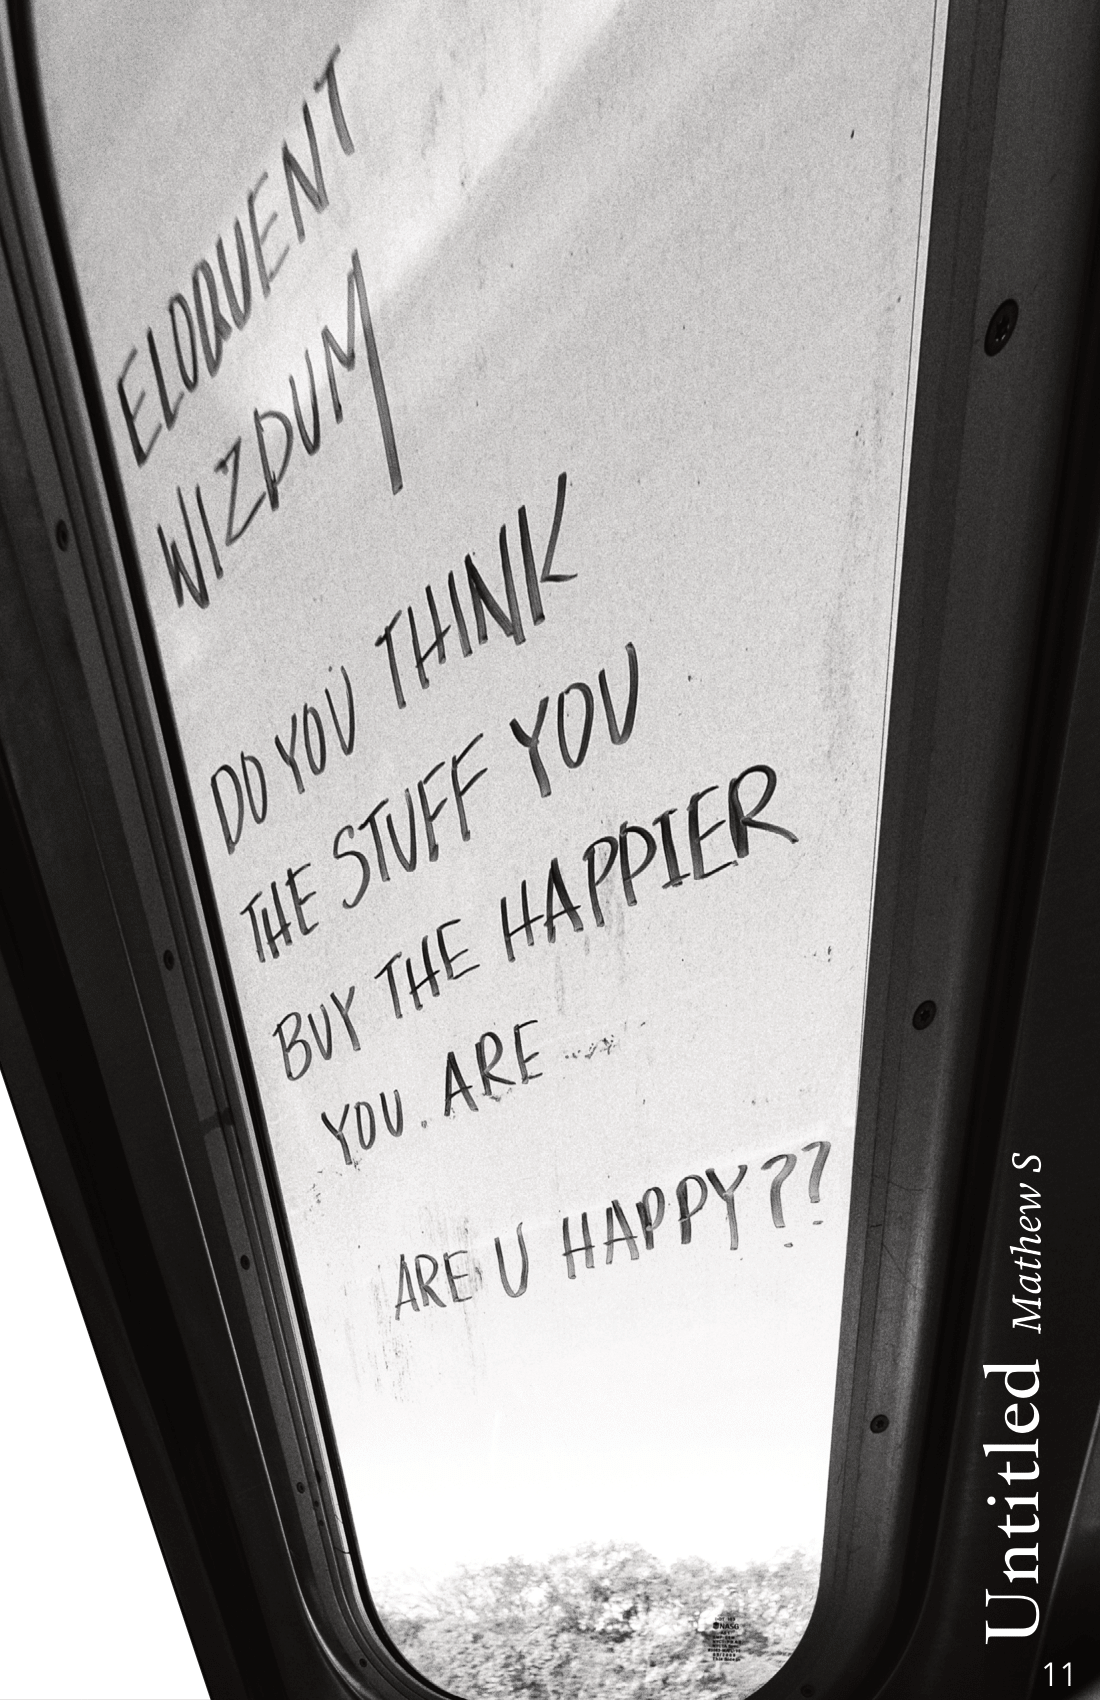 ELOQUENT
WIZDUM
DO YOU THINK
THE STUFF YOU
BUY THE HAPPIER
YOU. ARE
ARE U HAPPY??
Untitled Mathew S
11
NASG